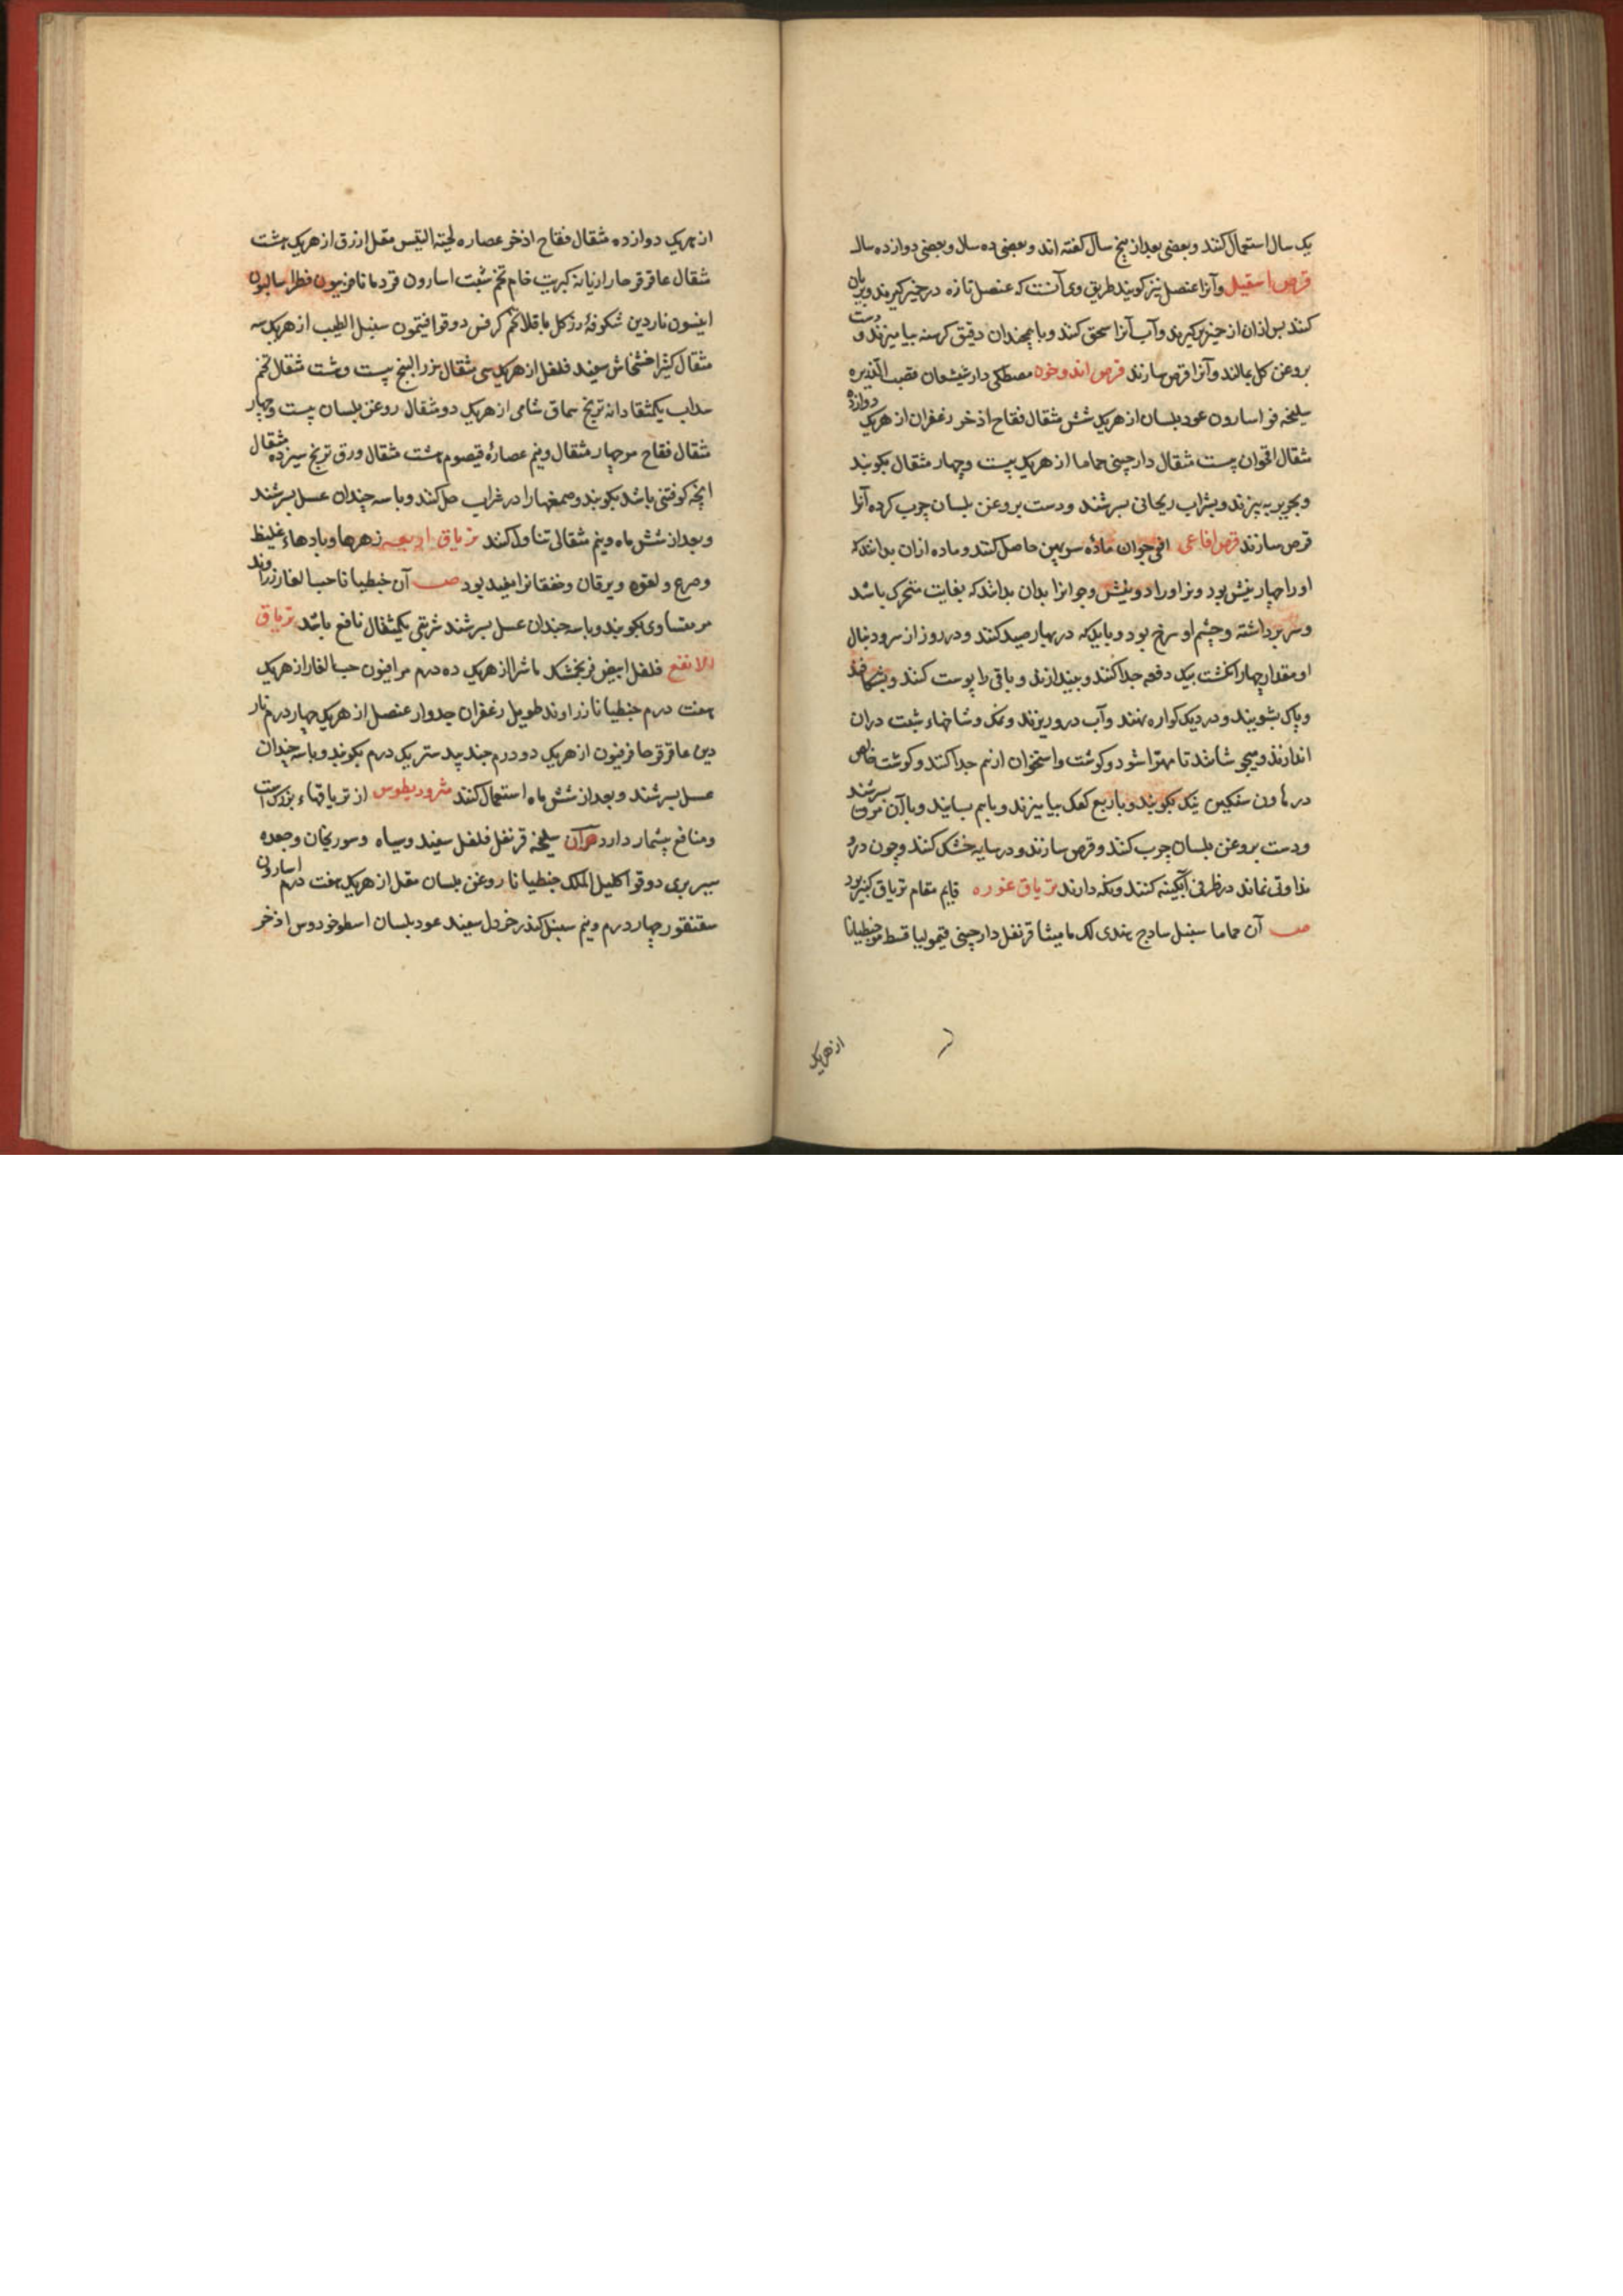 یک سال استعمال کنند و بعضی بعد از پنج سال گفته اند و بعضی ده سال و بعضی دوازده سال
قرص اسقیل و آنرا عنصل نیز گویند طریق وی آنست که عنصل تازه در خمیر گیرند و بریان
کنند پس ازان از خمیر برگیرند و آب آنرا سحق کنند و با همچندان دقیق کرسنه بیامیزند و دست
بروغن گل بمالند و آنرا قرص سازند قرص اندوخون مصطکی دارشیشعان قصب الذریره
سلیخه فو اسارون عود بلسان از هریک شش مثقال فقاح اذخر زعفران از هریک دوازده
مثقال اقحوان بیست مثقال دارچینی حماما از هریک بیست و چهار مثقال بکوبند
و بحریر به بیزند و بشراب ریحانی بسرشند و دست بروغن بلسان چرب کرده آنرا
قرص سازند قرص افاعی افعی جوان ماده سر پهن حاصل کنند و ماده ازان بدانند که
اورا چهار نیش بود و نر اورا دو نیش و جوانرا بدان بدانند که بغایت متحرک باشد
و سر برداشته و چشم او سرخ بود و باید که در بهار صید کنند و در روز از سر و دنبال
او مقدار چهار انگشت بیک دفعه جدا کنند و بیندازند و باقی را پوست کنند و بشکافند
و پاک بشویند و در دیک کواره نهند و آب در و ریزند و نمک و شاخهاء شبت دران
اندازند و میجوشانند تا مهرا شود و گوشت و استخوان از هم جدا کنند و گوشت خالص
در هاون سنگین نیک بکوبند و با ربع کعک بیامیزند و باهم بسایند و با آن مرق بسرشند
و دست بروغن بلسان چرب کنند و قرص سازند و در سایه خشک کنند و چون درو
نداوتی نماند در ظرفی آبگینه کنند و نگه دارند تریاق عزره قایم مقام تریاق کبیر بود
صـ آن حماما سنبل سادج هندی لک مامیثا قرنفل دارچینی قیمولیا قسط مر جنطیانا
از هریک
از هریک دوازده مثقال فقاح اذخر عصاره لحیة التیس مقل ازرق از هریک هشت
مثقال عاقرقرحا رازیانه کبریت خام تخم شبت اسارون قردمانا فربیون فطراسالیون
انیسون ناردین شکوفهٔ رز گل باقلا تخم کرفس دوقو افتیمون سنبل الطیب از هریک سه
مثقال کثیرا خشخاش سفید فلفل از هریک سی مثقال بزر البنج بیست و شت مثقال تخم
سداب یکمثقال دانه ترنج سماق شامی از هریک دو مثقال روغن بلسان بیست و چهار
مثقال فقاح مر چهار مثقال و نیم عصارهٔ قیصوم هشت مثقال ورق ترنج سیزده مثقال
آنچه کوفتنی باشد بکوبند و صمغها را در شراب حل کنند و با سه چندان عسل بسرشند
و بعد از شش ماه و نیم مثقالی تناول کنند تریاق اربعه زهرها و بادهاء غلیظ
و صرع و لقوه و یرقان و خفقانرا مفید بود صـ آن جنطیانا حب الغار زراوند
مر متساوی بکوبند و با سه چندان عسل بسرشند شربتی یکمثقال نافع باشد تریاق
الانفع فلفل ابیض فرنجمشک ماشرا از هریک ده درم مر افیون حب الغار از هریک
هفت درم جنطیانا زراوند طویل زعفران جدوار عنصل از هریک چهار درم نار
دین عاقرقرحا فرفیون از هریک دو درم جند بیدستر یک درم بکوبند و با سه چندان
عسل بسرشند و بعد از شش ماه استعمال کنند مثرودیطوس از تریاقهاء بزرگ است
و منافع بیشمار دارد صـ آن سلیخه قرنفل فلفل سفید و سیاه و سورنجان و جعده
سیر بری دوقو اکلیل الملک جنطیانا روغن بلسان مقل از هریک هفت درم اسارون
سقنقور چهار درم و نیم سنبل کندر خردل سفید عود بلسان اسطوخودوس اذخر